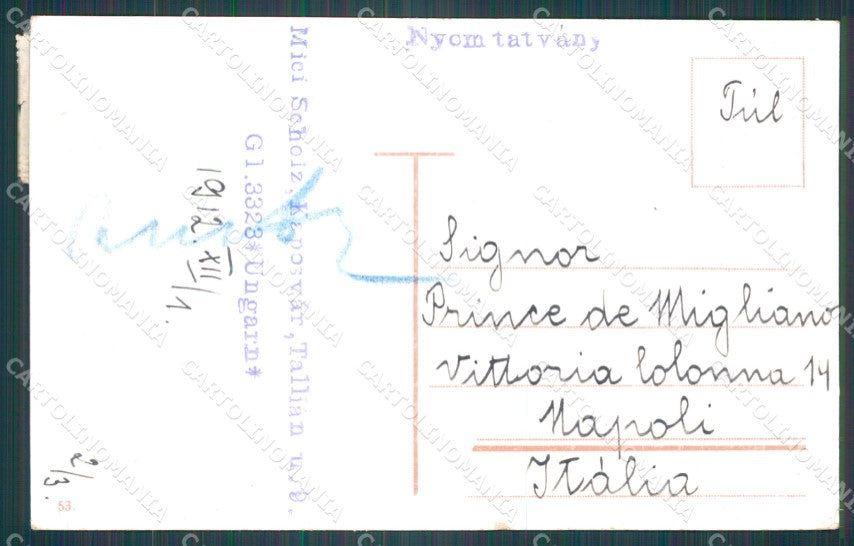 Nyomtatvány
Túl
Mici Scholz, Kaposvár, Tallián u. 6.
Gl. 3328*Ungarn*
1912. XII/1.
Signor
Prince de Migliano
Vittoria Colonna 14
Napoli
Itália
2/3.
53.
CARTOLINOMANIA